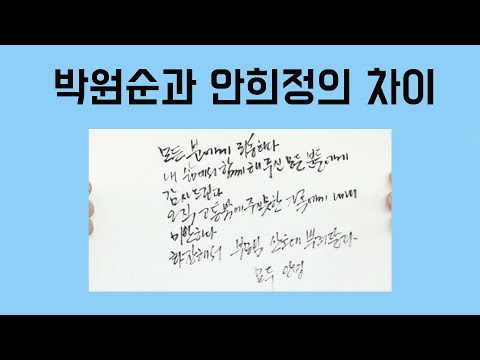 박원순과 안희정의 차이
모든 분에게 죄송하다
내 삶에서 함께 해주신 모든 분들에게
감사드린다
오직 고통밖에 주지 못한 가족에게 내내
미안하다
화장해서 부모님 산소에 뿌려달라
모두 안녕